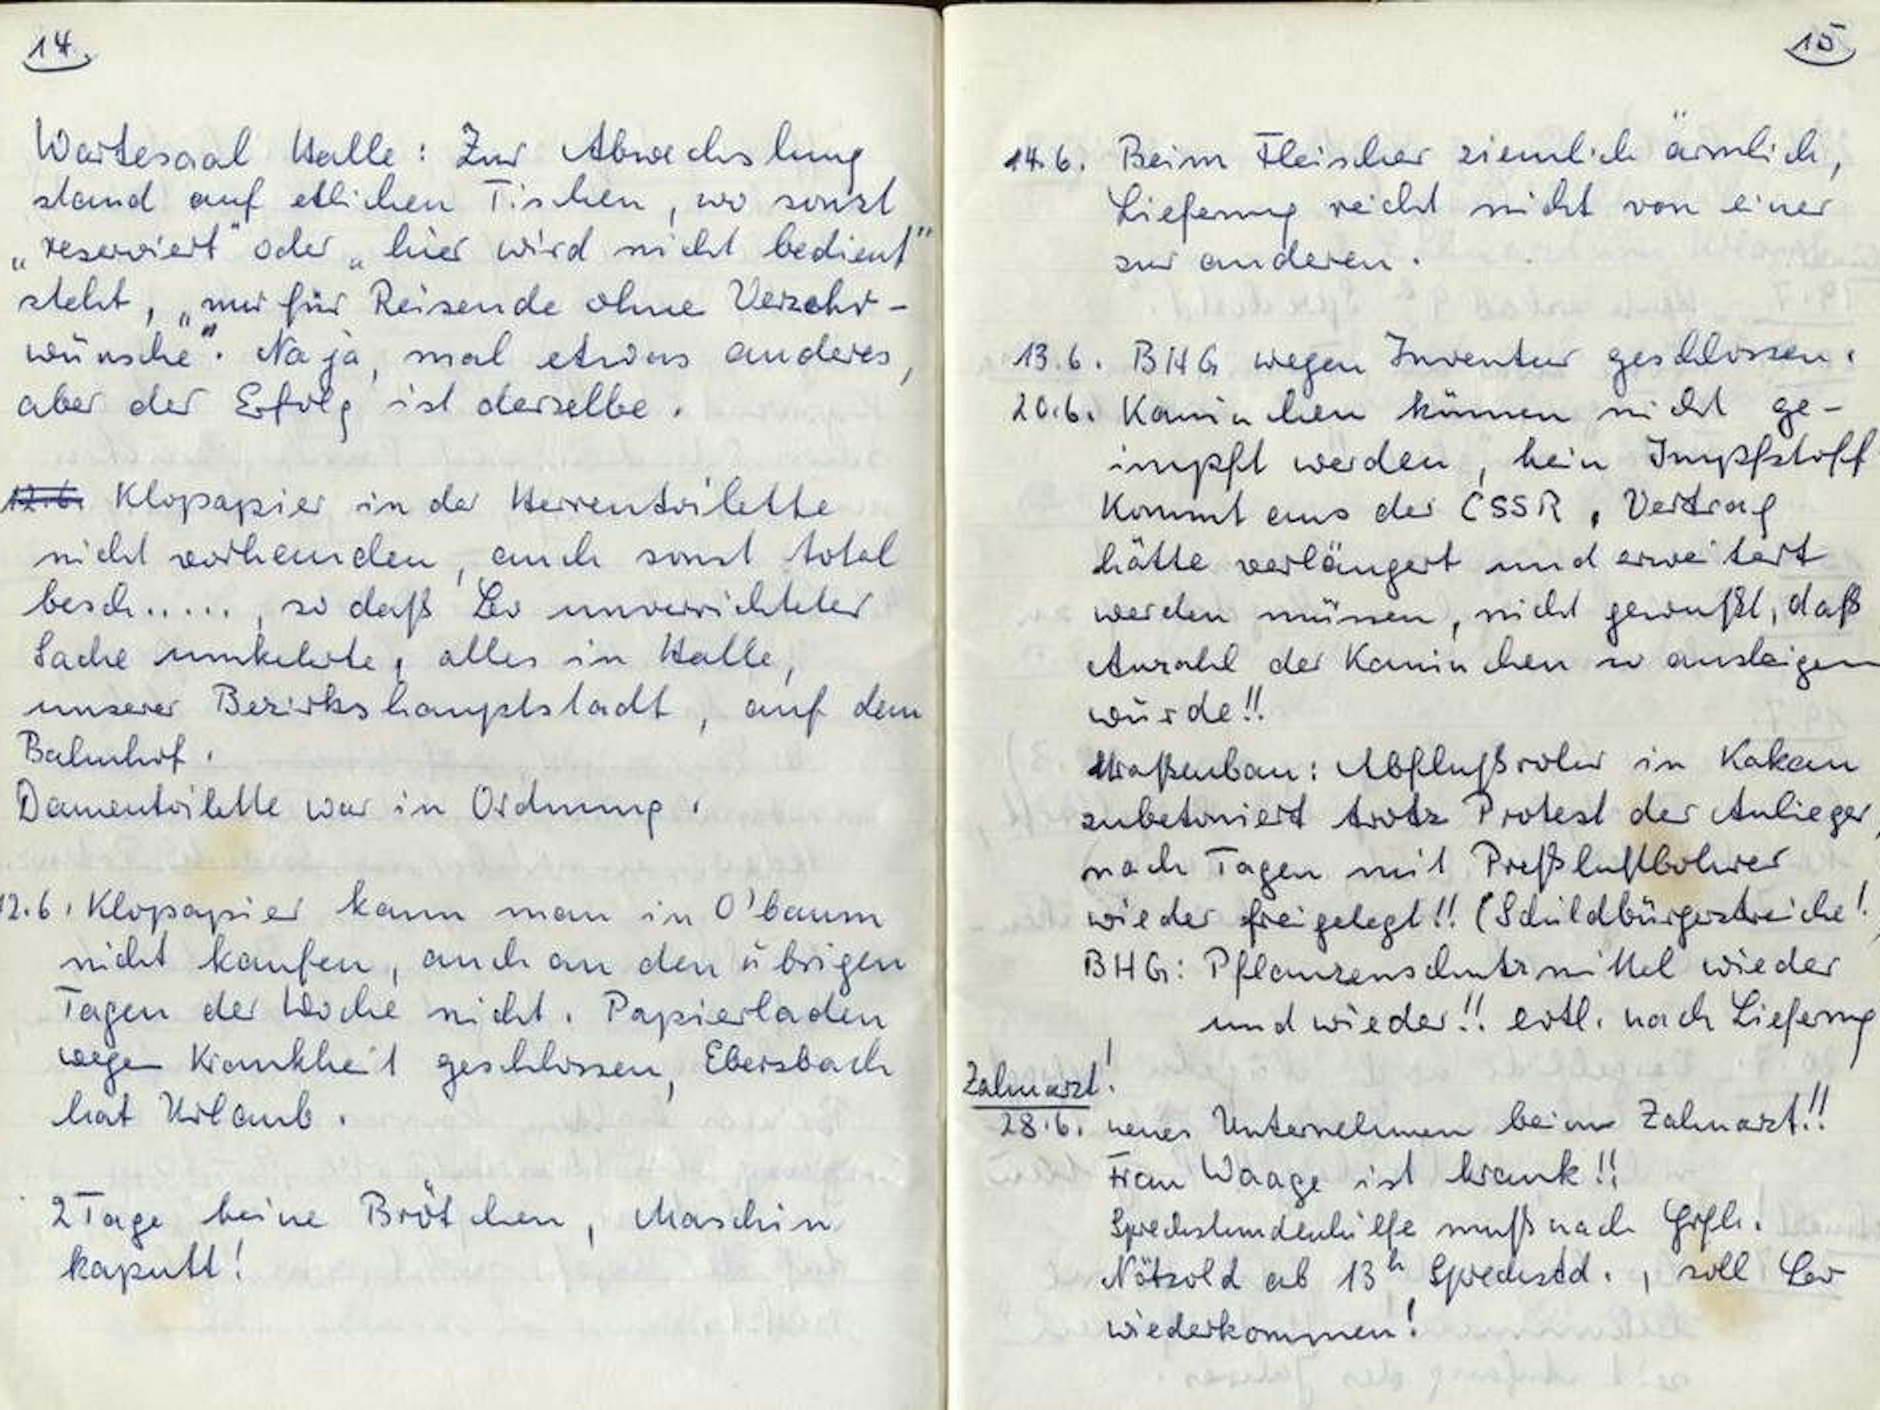 14.
Wartesaal Halle: Zur Abwechslung
stand auf etlichen Tischen, wo sonst
„reserviert" oder „hier wird nicht bedient"
steht, „nur für Reisende ohne Verzehr-
wünsche". Na ja, mal etwas anderes,
aber der Erfolg ist derselbe.
12.6. Klopapier in der Herrentoilette
nicht vorhanden, auch sonst total
besch....., so daß Leo unverrichteter
Sache umkehrte, alles in Halle,
unserer Bezirkshauptstadt, auf dem
Bahnhof.
Damentoilette war in Ordnung.
12.6. Klopapier kann man in O'baum
nicht kaufen, auch an den übrigen
Tagen der Woche nicht. Papierladen
wegen Krankheit geschlossen, Ebersbach
hat Urlaub.
2 Tage keine Brötchen, Maschin
kaputt!
15
14.6. Beim Fleischer ziemlich ärmlich,
Lieferung reicht nicht von einer
zur anderen.
13.6. BHG wegen Inventur geschlossen.
20.6. Kaninchen können nicht ge-
impft werden, kein Impfstoff
Kommt aus der ČSSR, Vertrag
hätte verlängert und erweitert
werden müssen, nicht gewußt, daß
Anzahl der Kaninchen so ansteigen
würde!!
Straßenbau: Abflußrohr in Kakau
zubetoniert trotz Protest der Anlieger,
nach Tagen mit Preßluftbohrer
wieder freigelegt!! (Schildbürgerstreiche!
BHG: Pflanzenschutzmittel wieder
und wieder!! evtl. nach Lieferung
Zahnarzt!
28.6. neues Unternehmen beim Zahnarzt!!
Frau Waage ist krank!!
Sprechstundenhilfe muß nach Grfh.
Nötzold ab 13h Sprechstd., soll Leo
wiederkommen!